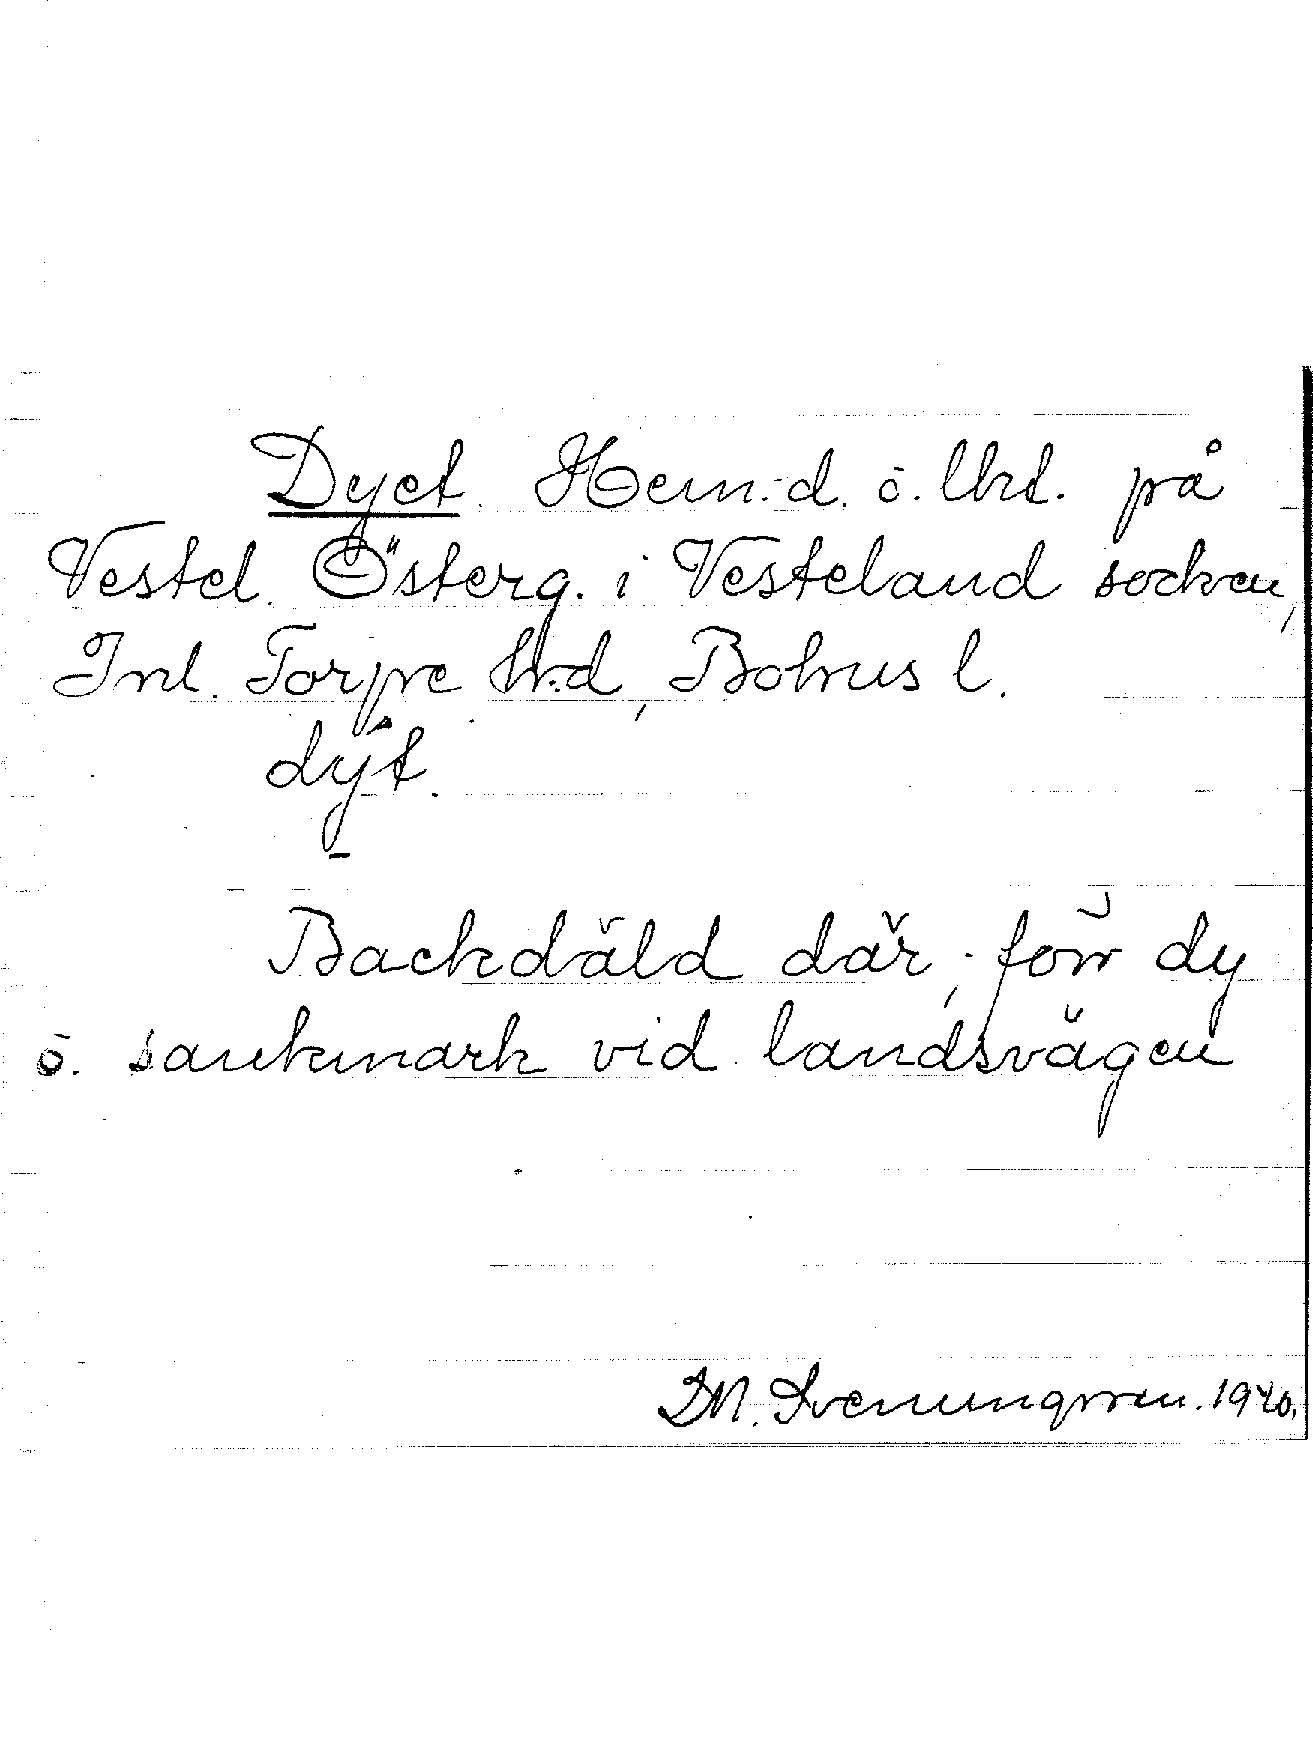 Dyet. Hem:d. o. lht. på
Vestel. Österg. i Vesteland socken,
Inl. Torpe h:d, Bohus l.
dyt.
Backdäld där; förr dy
o. sankmark vid landsvägen
Svenungsson. 1940.